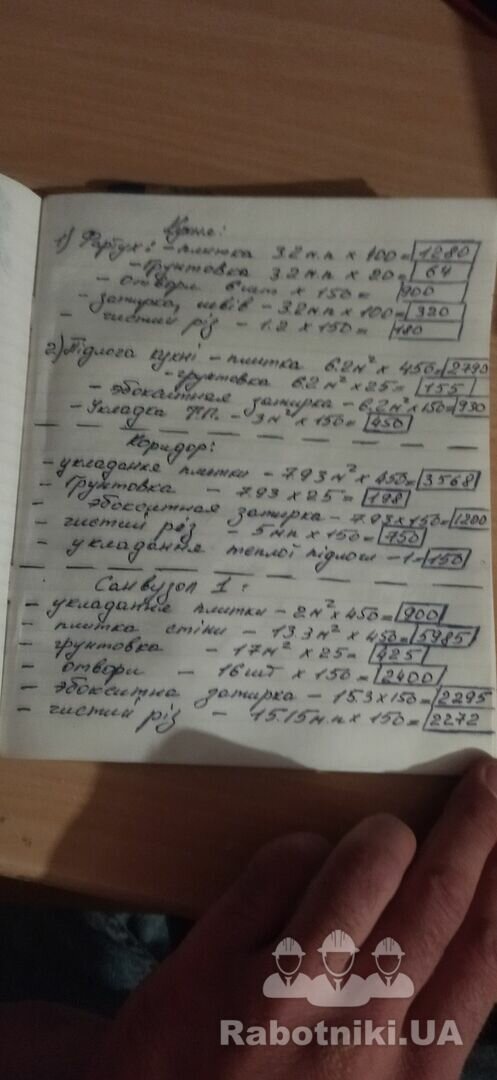 Кухня:
1) Фартух: - плитка 3.2 м.п × 400 = 1280
- грунтовка 3.2 м.п × 20 = 64
- отвори 6 шт × 150 = 900
- затирка швів - 3.2 м.п × 100 = 320
- чистий різ - 1.2 × 150 = 180
2) Підлога кухні - плитка 6.2 м² × 450 = 2790
- грунтовка 6.2 м² × 25 = 155
- эбокситная затирка - 6.2 м² × 150 = 930
- Укладка Т.П. - 3 м² × 150 = 450
Коридор:
- укладання плитки - 7.93 м² × 450 = 3568
- Грунтовка - 7.93 × 25 = 198
- эбокситная затирка - 7.93 × 150 = 1200
- чистий різ - 5 м п × 150 = 750
- укладання теплої підлоги - 1 = 150
Санвузол 1:
- укладание плитки - 2 м² × 450 = 900
- плитка стіни - 13.3 м² × 450 = 5985
- грунтовка - 17 м² × 25 = 425
- отвори - 16 шт × 150 = 2400
- эбокситна затирка - 15.3 × 150 = 2295
- чистий різ - 15.15 м.п × 150 = 2272
Rabotniki.UA